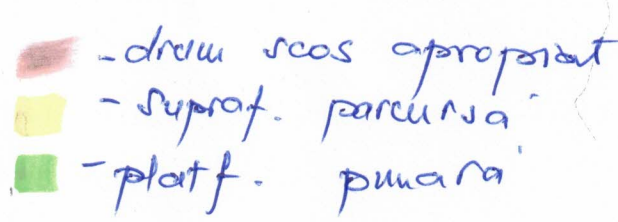 - drum scos apropiat
- supraf. parcursă
- platf. primară